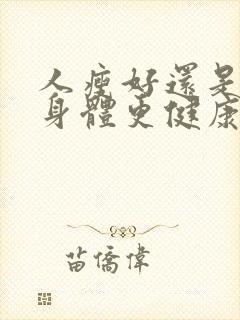 人瘦好還是
身體更健康
苗僑偉